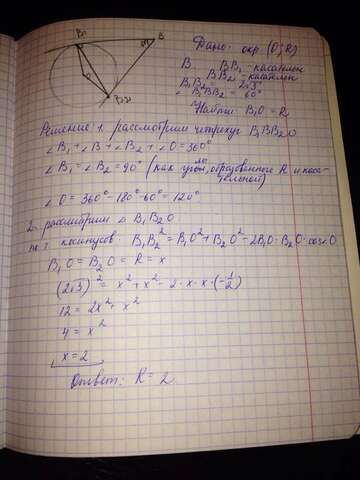 B₁
B
60°
O
B₂
Дано: окр (O;R)
B BB₁ - касателен
BB₂ - касателен
B₁B₂ = 2√3
∠B₁BB₂ = 60°
Найти: B₁O = R
Решение: 1. рассмотрим четырехуг B₁BB₂O
∠B₁ + ∠B + ∠B₂ + ∠O = 360°
∠B₁ = ∠B₂ = 90° (как угол, образованное R и каса-
тельной)
∠O = 360° - 180° - 60° = 120°
2. рассмотрим △ B₁B₂O
по т. косинусов: B₁B₂² = B₁O² + B₂O² - 2B₁O · B₂O · cos O
B₁O = B₂O = R = x
(2√3)² = x² + x² - 2 · x · x · (-1/2)
12 = 2x² + x²
4 = x²
x = 2
Ответ: R = 2